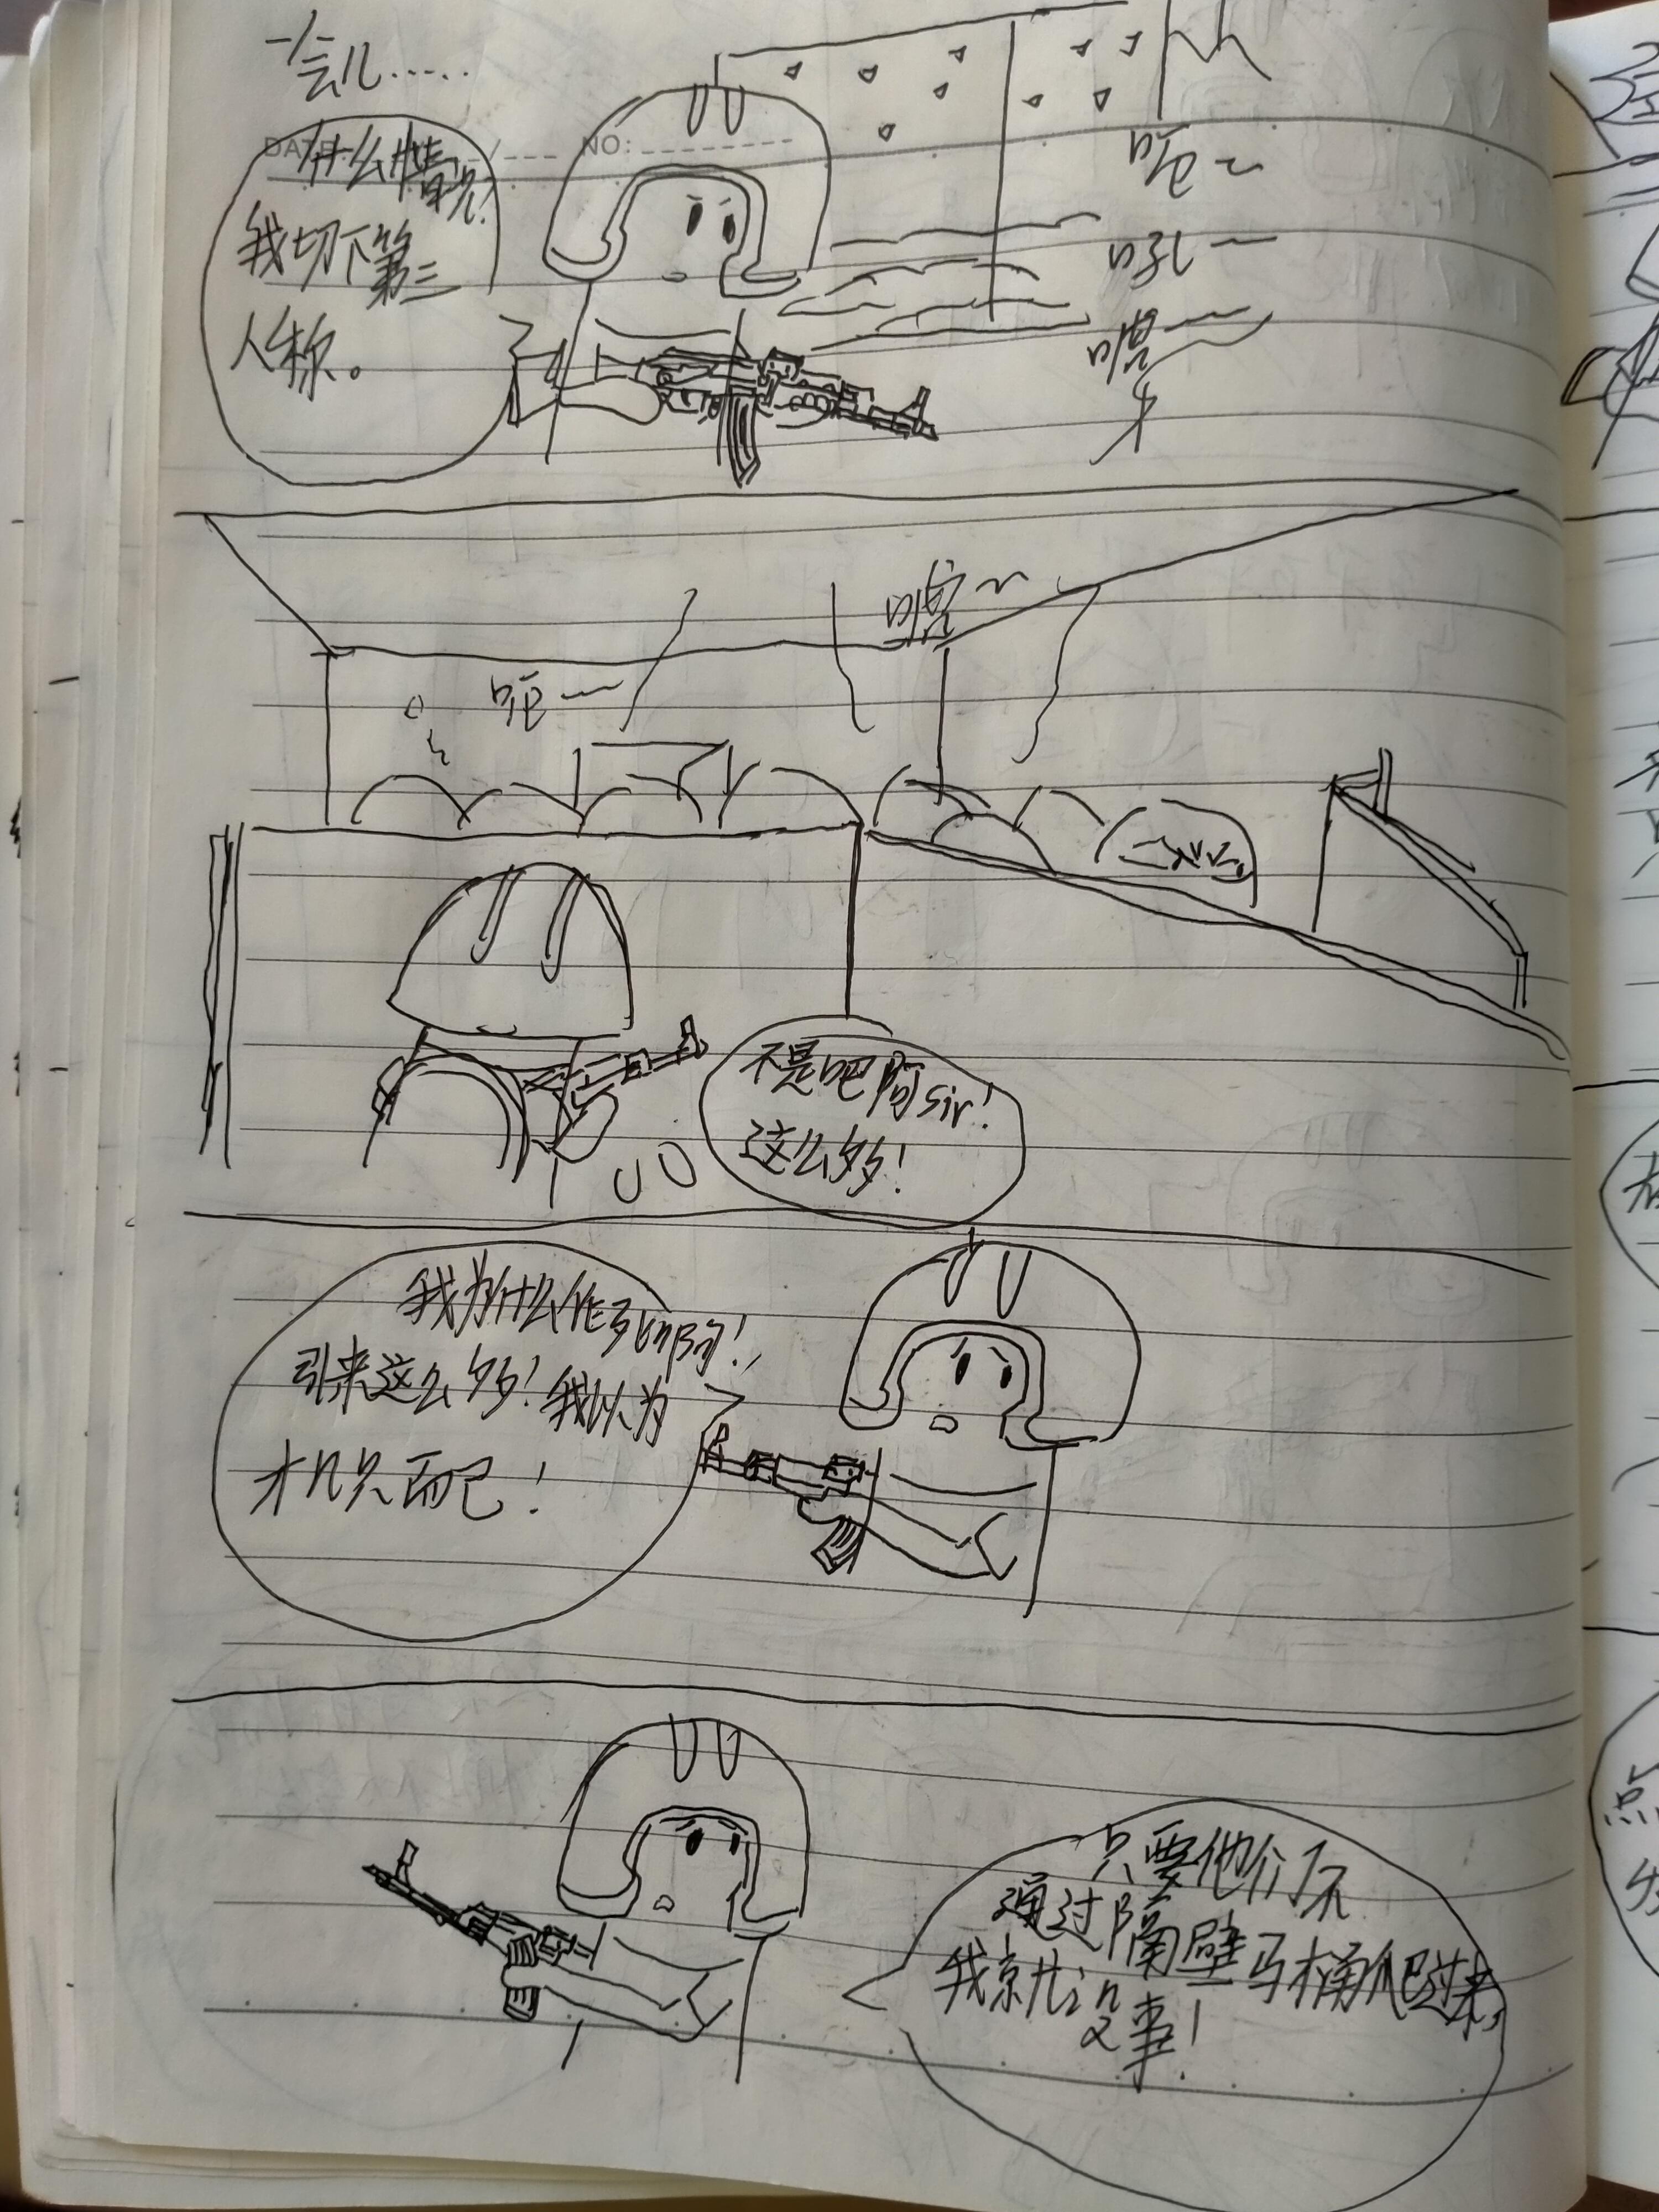 一会儿……
DATE: / NO:
什么情况!
我切下第三
人称。
呃~
吼~
嚎~
嚎~
呃~
不是吧阿sir!
这么多!
我为什么作死如厕!
引来这么多!我以为
才几只而已!
只要他们不
通过隔壁马桶爬过来,
我就没事!